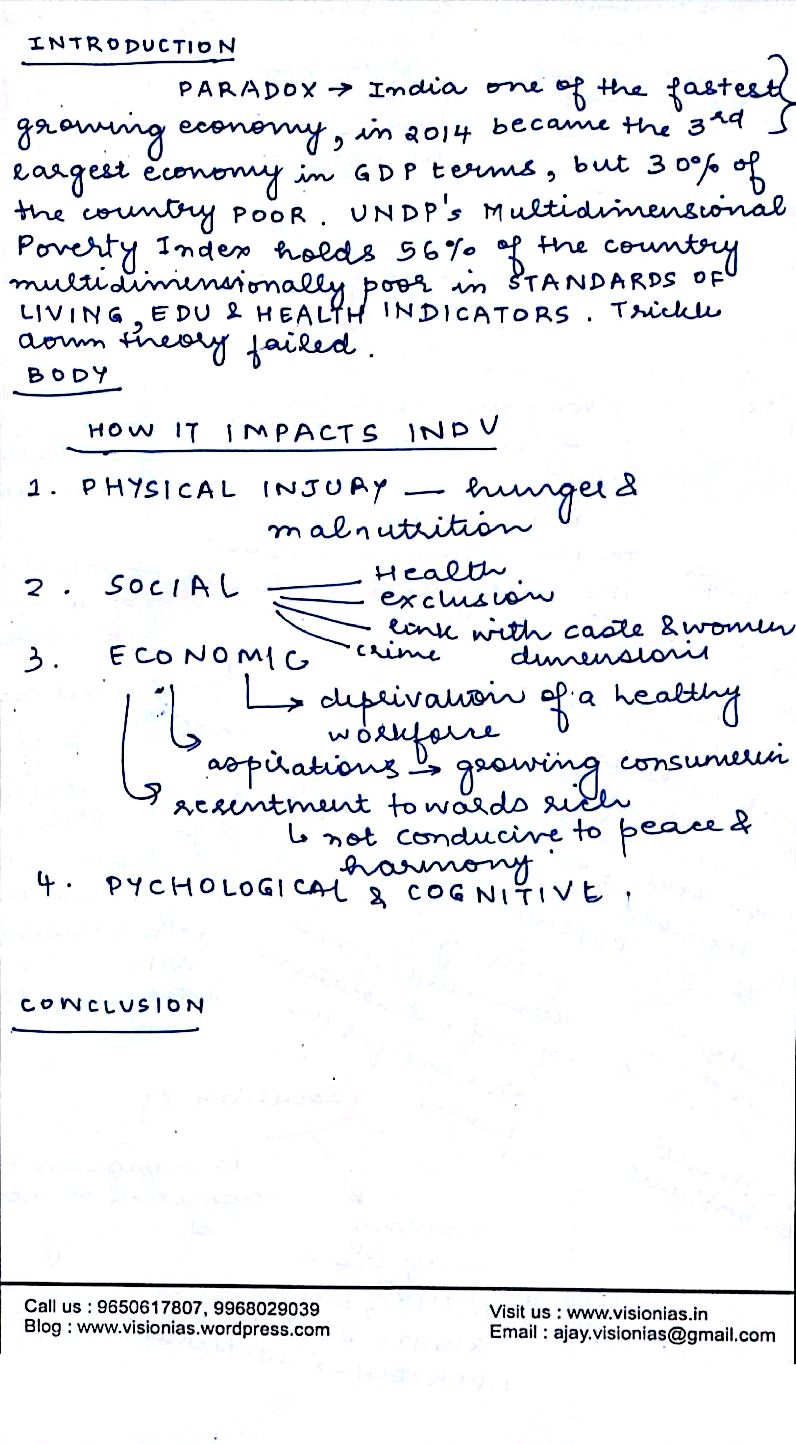 INTRODUCTION
PARADOX → India one of the fastest
growing economy, in 2014 became the 3rd
largest economy in GDP terms, but 30% of
the country POOR. UNDP's Multidimensional
Poverty Index holds 56% of the country
multidimensionally poor in STANDARDS OF
LIVING, EDU & HEALTH INDICATORS. Trickle
down theory failed.
BODY
HOW IT IMPACTS INDV
1. PHYSICAL INJURY — hunger &
malnutrition
2. SOCIAL
Health
exclusion
link with caste & women
dimensions
crime
3. ECONOMIC
→ deprivation of a healthy
workforce
aspirations → growing consumerism
resentment towards rich
↳ not conducive to peace &
harmony.
4. PYCHOLOGICAL & COGNITIVE.
CONCLUSION
Call us : 9650617807, 9968029039
Blog : www.visionias.wordpress.com
Visit us : www.visionias.in
Email : ajay.visionias@gmail.com